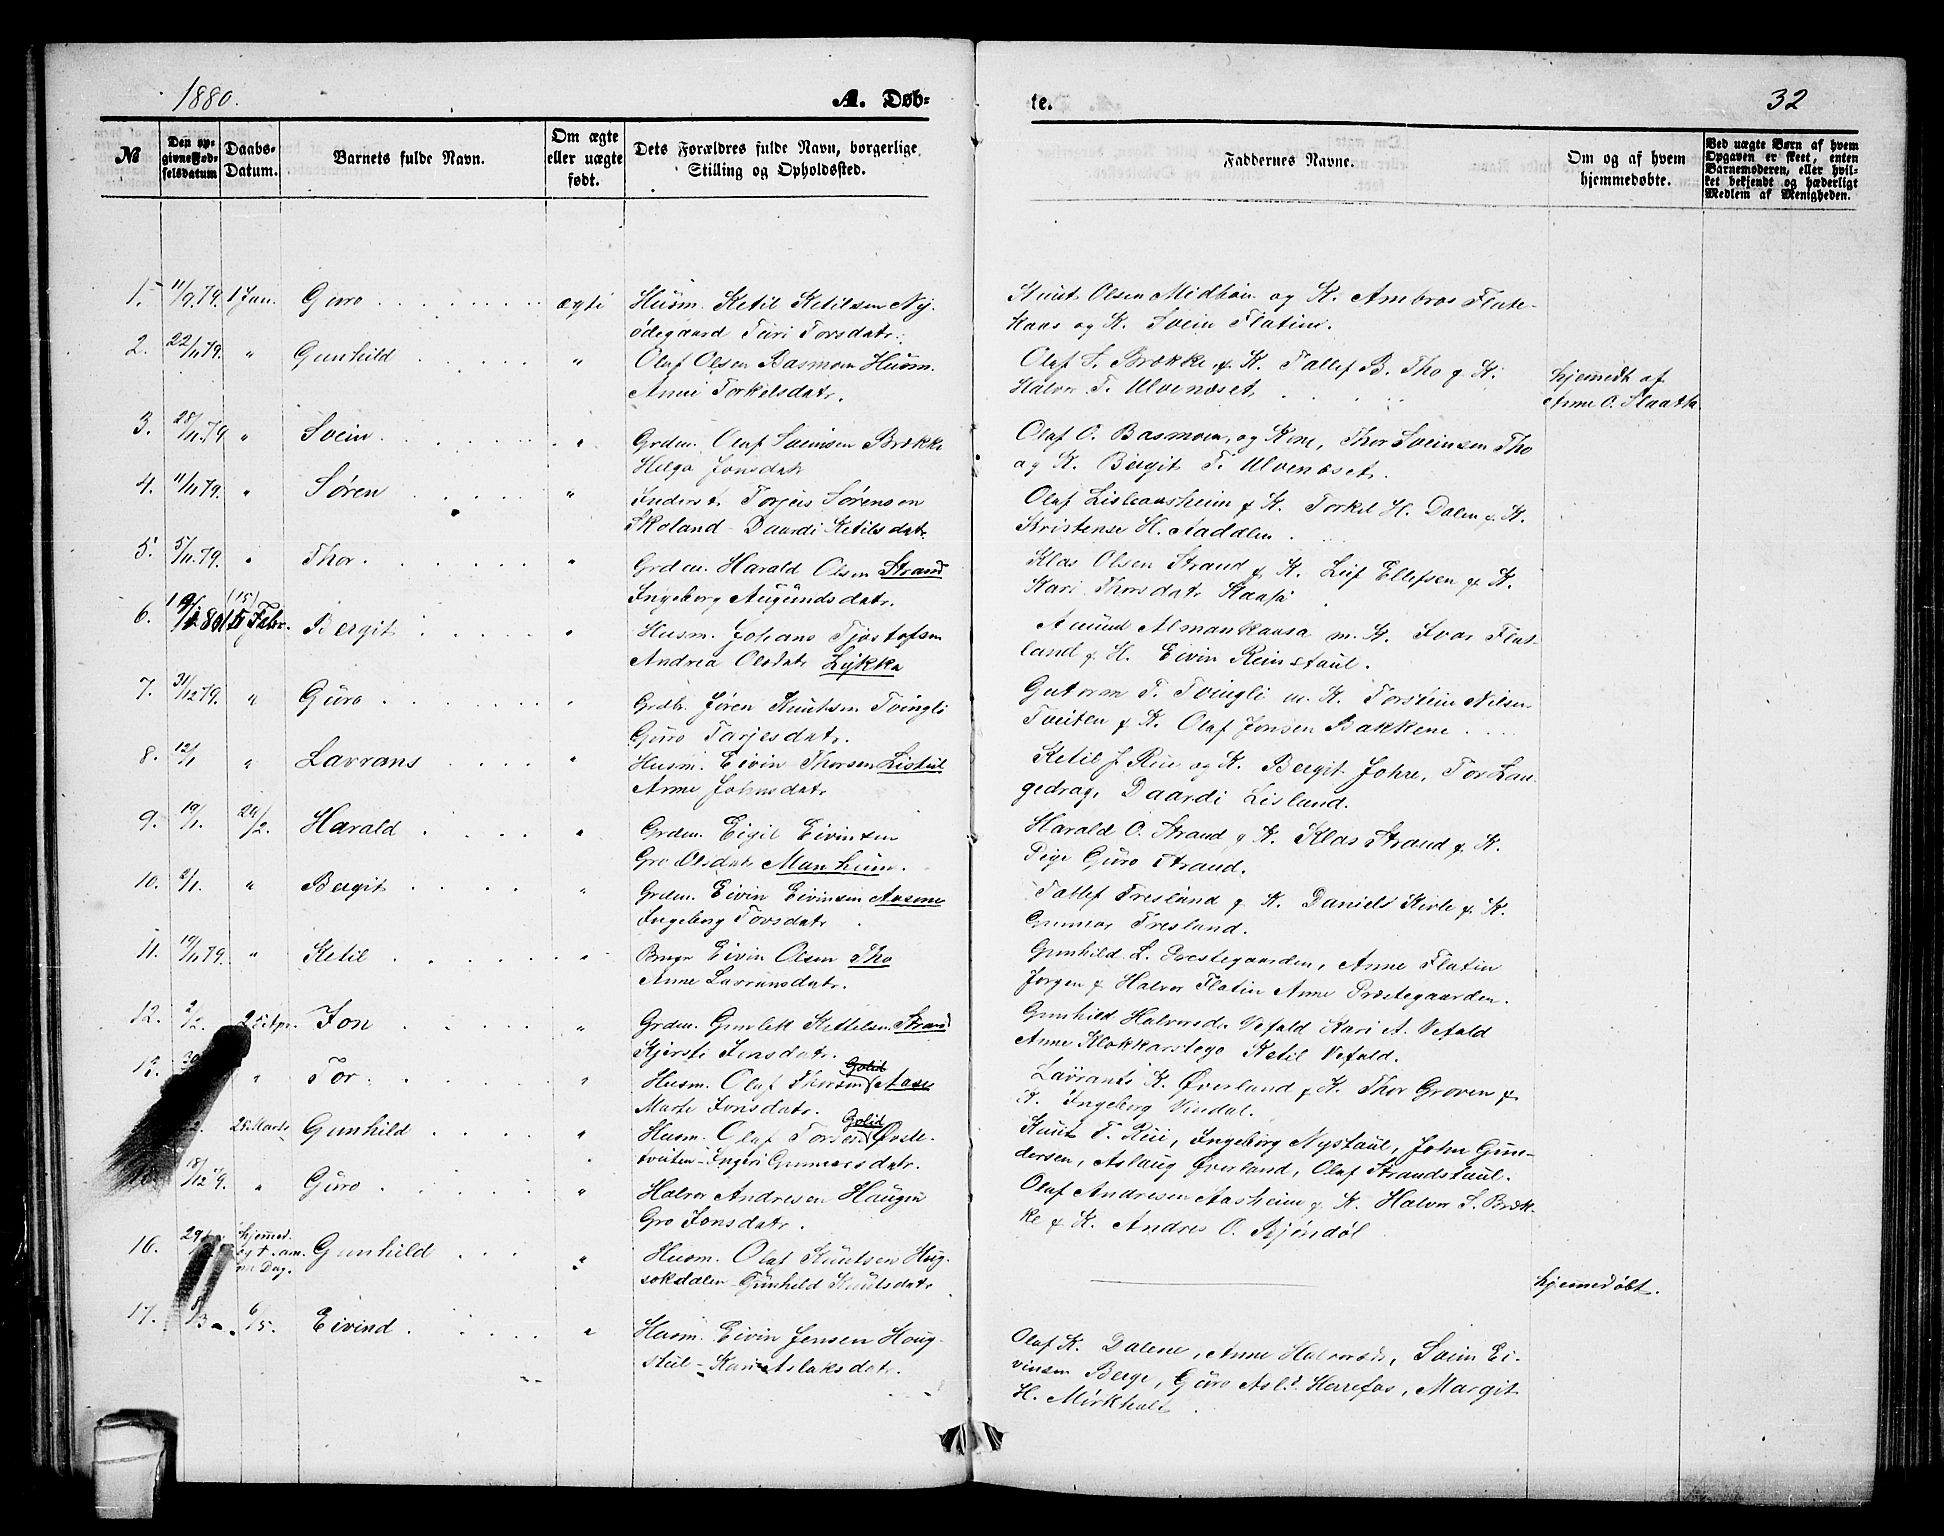 1880.
A. Døb-
te.
32
№
Den op-
givne Fød-
selsdatum
Daabs-
Datum.
Barnets fulde Navn.
Om ægte
eller uægte
født.
Dets Forældres fulde Navn, borgerlige
Stilling og Opholdssted.
Faddernes Navne.
Om og af hvem
hjemmedøbte.
Ved uægte Børn af hvem
Opgaven er skeet, enten
Barnemoderen, eller hvil-
ket bekjendt og hæderligt
Medlem af Menigheden.
1. 11/9 79. 1 Jan. Guro ægte Husm. Ketil Ketilsen Ny-
ødegaard Turi Torsdatr.
Knut Olsen Midbøen og K. Ambros Flate-
kaas og K. Svein Flatin.
2. 22/11 79. " Gunhild " Olaf Olsen Basmoen Husm.
Anne Torkelsdatr.
Olaf S. Brække & K. Tallef B. Tho & K.
Halvor T. Ulvenæset
hjemmedt af
Anne O. Slaatta
3. 28/11 79. " Svein " Grdm. Olaf Sveinsen Brække
Helga Jonsdatr
Olaf O. Basmoen, og Kone, Thor Sveinsen Tho
og K. Bergit T. Ulvenæset.
4. 11/11 79. " Søren " Inderst. Torjus Sørensen
Skoland - Daardi Ketilsdatr
Olaf Lisleaasheim & K. Torkel H. Dalen & K.
Kristense H. Aaddlen
5. 5/11 79. " Thor. " Grdm. Harald Olsen Strand
Ingeborg Augundsdatr.
Klas Olsen Strand & K. Leif Ellefsen & K.
Kari Thorsdatr Kaasa
6. 80 (15) 15 Febr. Bergit " Husm. Johans Tjostofsen
Andrea Olsdatr Lykka
Amund Almankaasa m. K. Ivar Flat-
land & K. Eivin Reinstaul.
7. 31/12 79. " Guro " Grdbr. Jøren Knutsen Tvingli
Guro Tarjesdatr.
Gutorm T. Tvingli m. K. Torstein Nilsen
Tveiten & K. Olaf Jonsen Bakkene
8. 12/1 " Lavrans " Husm. Eivin Thorsen Listul
Anne Johnsdatr
Ketil J. Rui og K. Bergit Johre, Tor Lan-
gedrag, Daardi Lisland.
9. 19/1. 29/2. Harald " Grdm. Eigil Eivinsen
Gro Olsdatr Manheim.
Harald O. Strand & K. Klas Strand & K.
Pige Guro Strand.
10. 2/1. " Bergit " Grdm. Eivin Eivinsen Aasene
Ingeborg Torsdatr
Tallef Fresland & K. Daniels Kivle & K.
Gunnar Fresland.
11. 19/11 79. " Ketil " Brugr Eivin Olsen Tho
Anne Lavransdatr.
Gunhild L. Prestegaarden, Anne Flatin
Jørgen & Halvor Flatin Anne Præstegaarden.
12. 2/2. 25 Apr. Jon " Grdm. Gunlek Kettelsen Strand
Kjersti Jonsdatr.
Gunhild Halvorsd. Vefald Kari A. Vefald
Anne Klokkarstego Ketil Vefald.
13. " Tor. " Husm. Olaf Thorsen (Golid Aase
Marte Jonsdatr.
Lavrants K. Øverland & K. Thor Groven &
K. Ingeborg Vindal.
28 Marts Gunhild " Husm. Olaf Torsen (Golid Øvste-
tveiten - Ingeri Gunnarsdatr.
Knut T. Rui, Ingeborg Nystaul, John Gun-
dersen, Aslaug Øverland, Olaf Strandstaul.
18/12 79. " Guro " Halvor Andresen Haugen
Gro Jonsdatr.
Olaf Andresen Aasheim & K. Halvor S. Bræk-
ke & K. Andres O. Bjøndøl
16. hjemmed.
øbt sam-
me Dag. Gunhild " Husm. Olaf Knutsen Houg-
sokdalen - Gunhild Knutsdatr
hjemmedøbt.
17. 8/3 6/5. Eivind. " Husm. Eivin Jensen Houg-
stul - Kari Aslaksdatr.
Olaf K. Dalene, Anne Halvorsd., Svein Ei-
vinsen Berge, Guro Asl.d. Harefos, Margit
H. Mirkhult